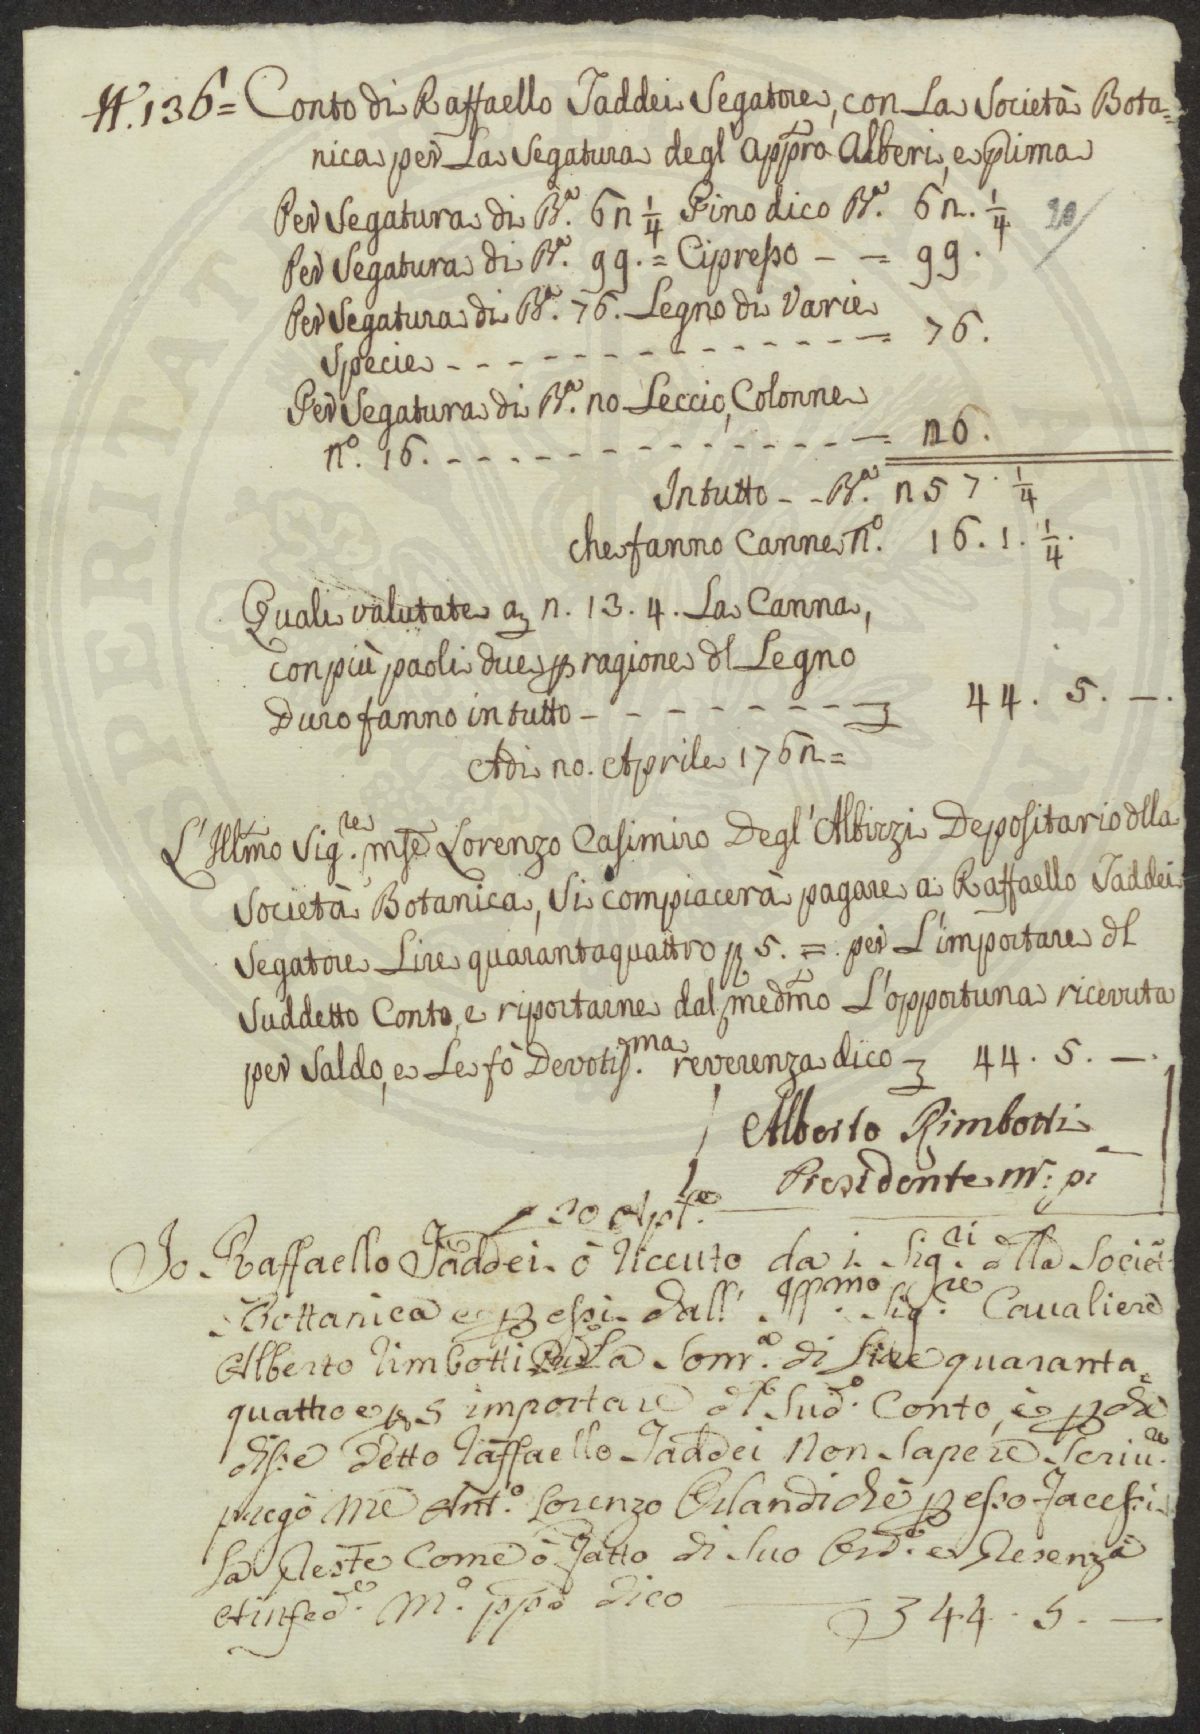 N.° 136 = Conto di Raffaello Taddei Segatore, con La Società Bota=
nica per La Segatura degl'appro Alberi, e prima
Per Segatura di Bra. 62 1/4 Pino dico Bra. 62. 1/4
20/
Per Segatura di Bra. 99. = Cipresso - = 99.
Per Segatura di Bra. 76. Legno di Varie
Specie - - - - - - - - - - - - = 76.
Per Segatura di Bra. 20 Leccio, Colonne
n.° 16. - - - - - - - - - - - - = 20.
In tutto - - Bra. 257. 1/4
che fanno Canne N.° 16. 1. 1/4.
Quali valutate a 2. 13. 4. La Canna,
con più paoli due p ragione dl Legno
Duro fanno in tutto - - - - - - - 44. 5. —.
Adi 20. Aprile 1762 =
L'Illmo Sig.re mse Lorenzo Casimiro Degl'Albizzi Depositario dlla
Società Botanica, Si compiacerà pagare a Raffaello Taddei
Segatore Lire quarantaquattro p 5. =. per L'importare dl
Suddetto Conto, e riportarne dal medmo L'opportuna ricevuta
per Saldo, e Le fò Devotis.ma reverenza dico 44. 5. —.
Alberto Rimbotti
Presidente m.° pi
20 Aple.
Io Raffaello Taddei ò riceuto da i Sig.ri dlla Società
Bottanica e p essi dall' Ill.mo Sig.re Caualiere
Alberto Rimbotti La Som.a di Lire quaranta
quattro e p 5 importare dl Sud.o Conto, e p che
disse detto Raffaello Taddei Non Sapere Scriu.re
pregò me Ant.o Lorenzo Orlandi che p esso facessi
La Preste Come ò fatto di Suo Ord.e e Presenza
et in fede. M.o ppa dico — 44. 5. —